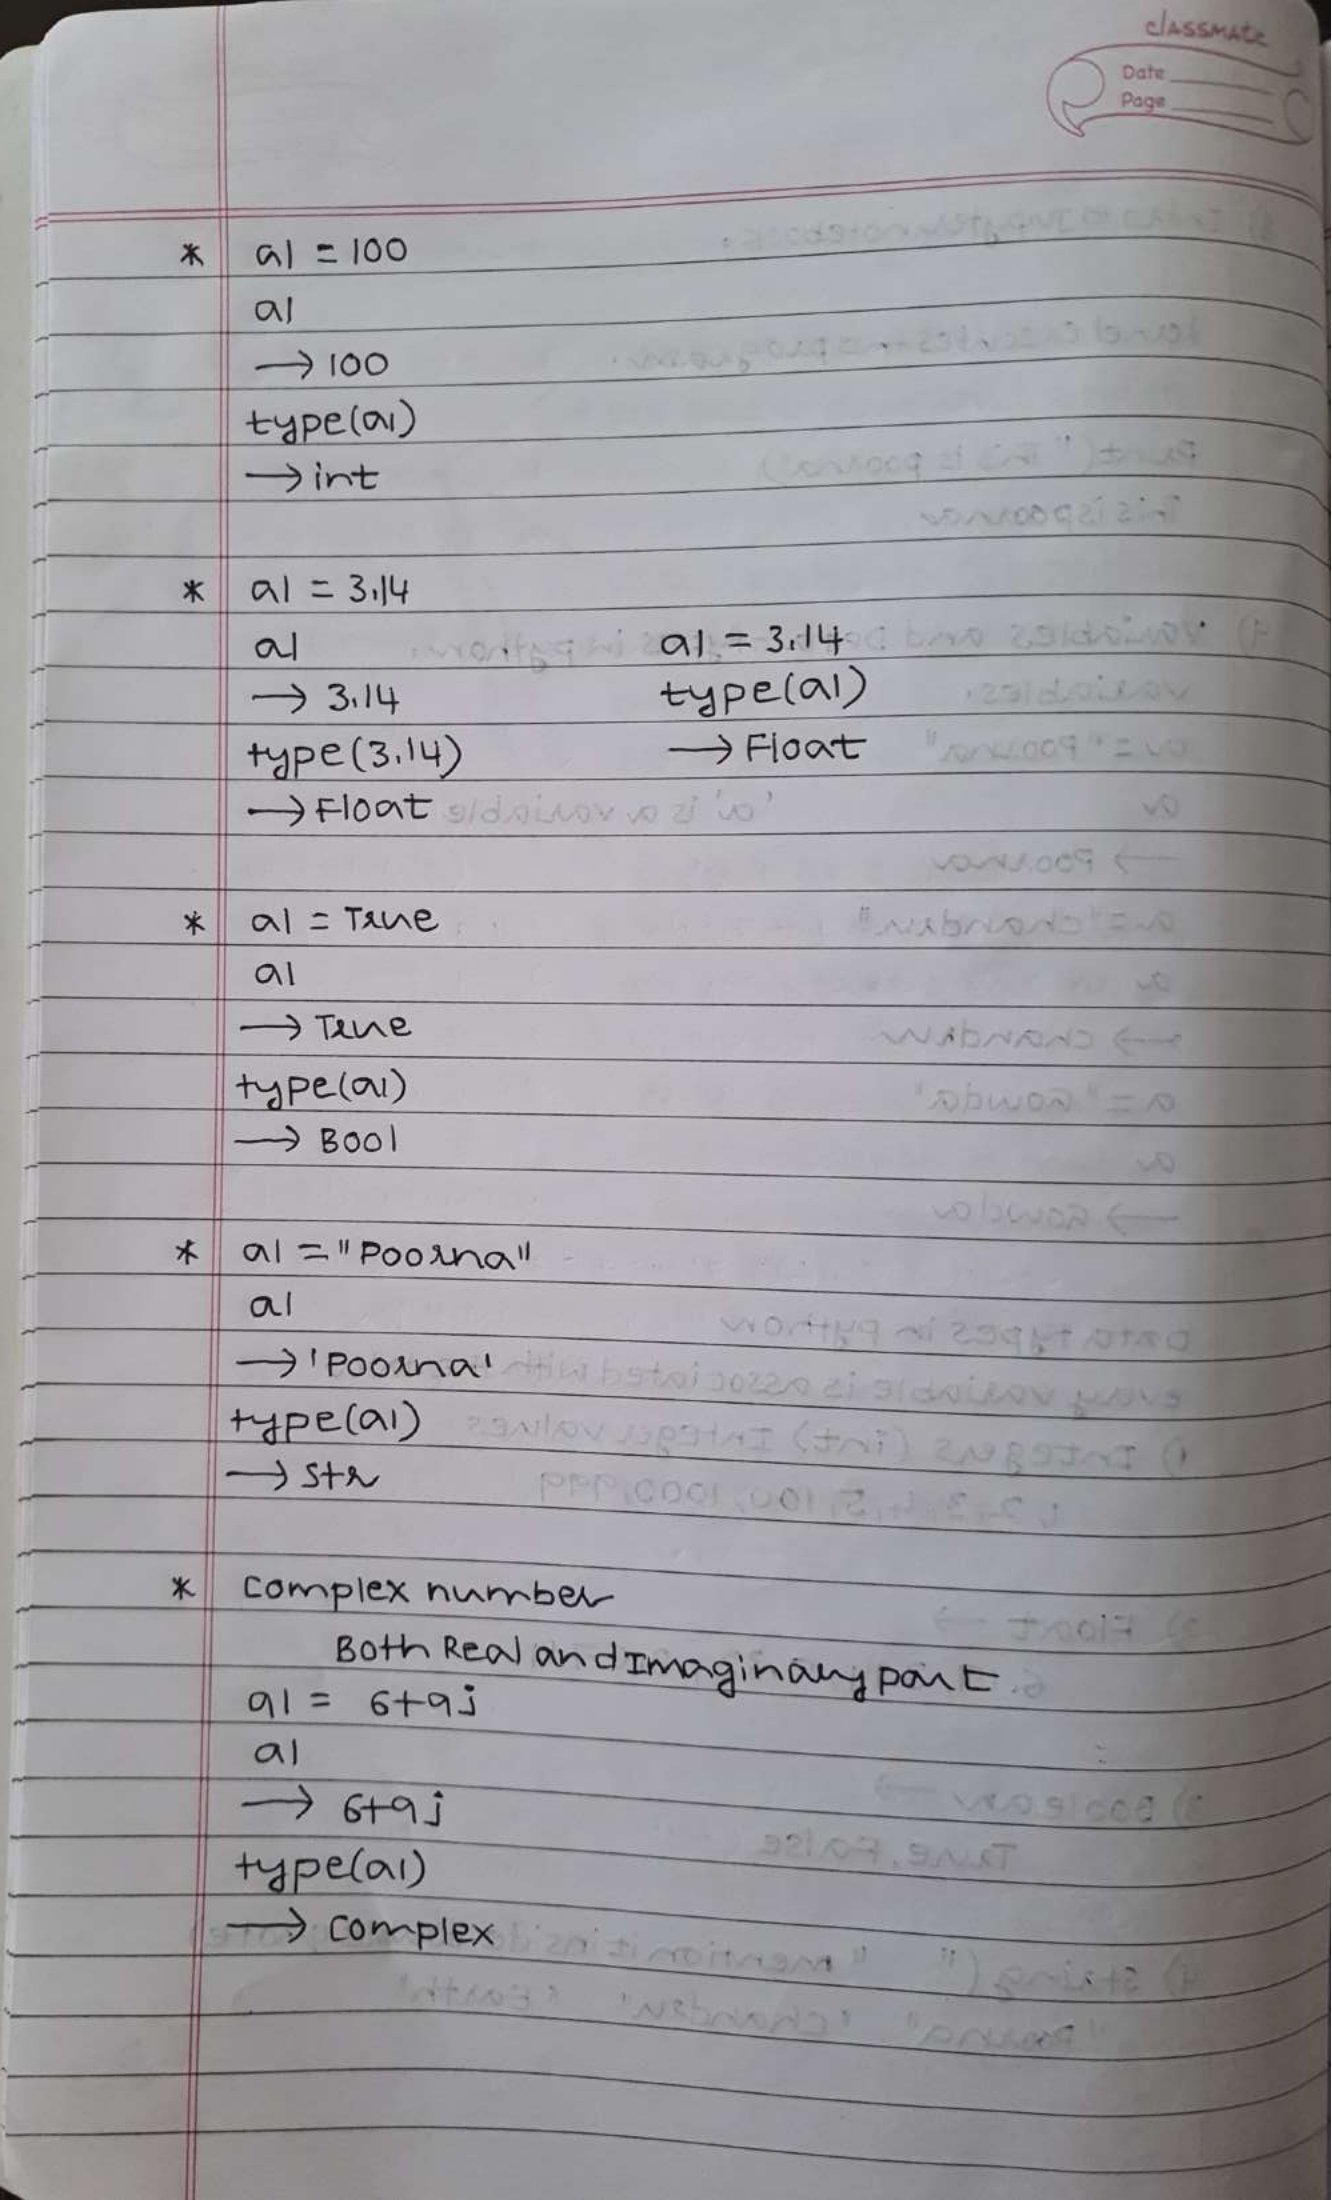 classmate
Date
Page
* a1 = 100
a1
→ 100
type(a1)
→ int
* a1 = 3.14
a1
→ 3.14
type(3.14)
→ Float
a1 = 3.14
type(a1)
→ Float
* a1 = True
a1
→ True
type(a1)
→ Bool
* a1 = "Poorna"
a1
→ 'Poorna'
type(a1)
→ str
* complex number
Both Real and Imaginary part.
a1 = 6+9j
a1
→ 6+9j
type(a1)
→ complex